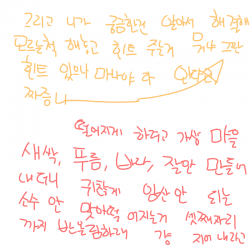 그리고 니가 궁금한건 알아서 해결해
모르는척 해놓고 힌트 주는거 뭐냐 그만
힌트 있으나 마나야 다
짜증나
떨어지게 하려고 가상 마을
새싹, 푸름, 바다, 잘만 만들어
내더니 귀찮게 임산 안 되는
소수 안 맞아떡 어지는거 셋째자리
까지 반올림하래 걍 지어내라고